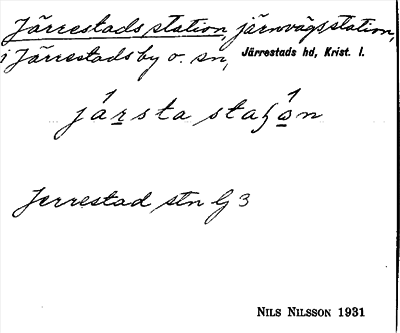 Järrestads station, järnvägsstation,
i Järrestads by o. sn, Järrestads hd, Krist. l.
jársta staʃón
Jerrestad stn G 3
NILS NILSSON 1931